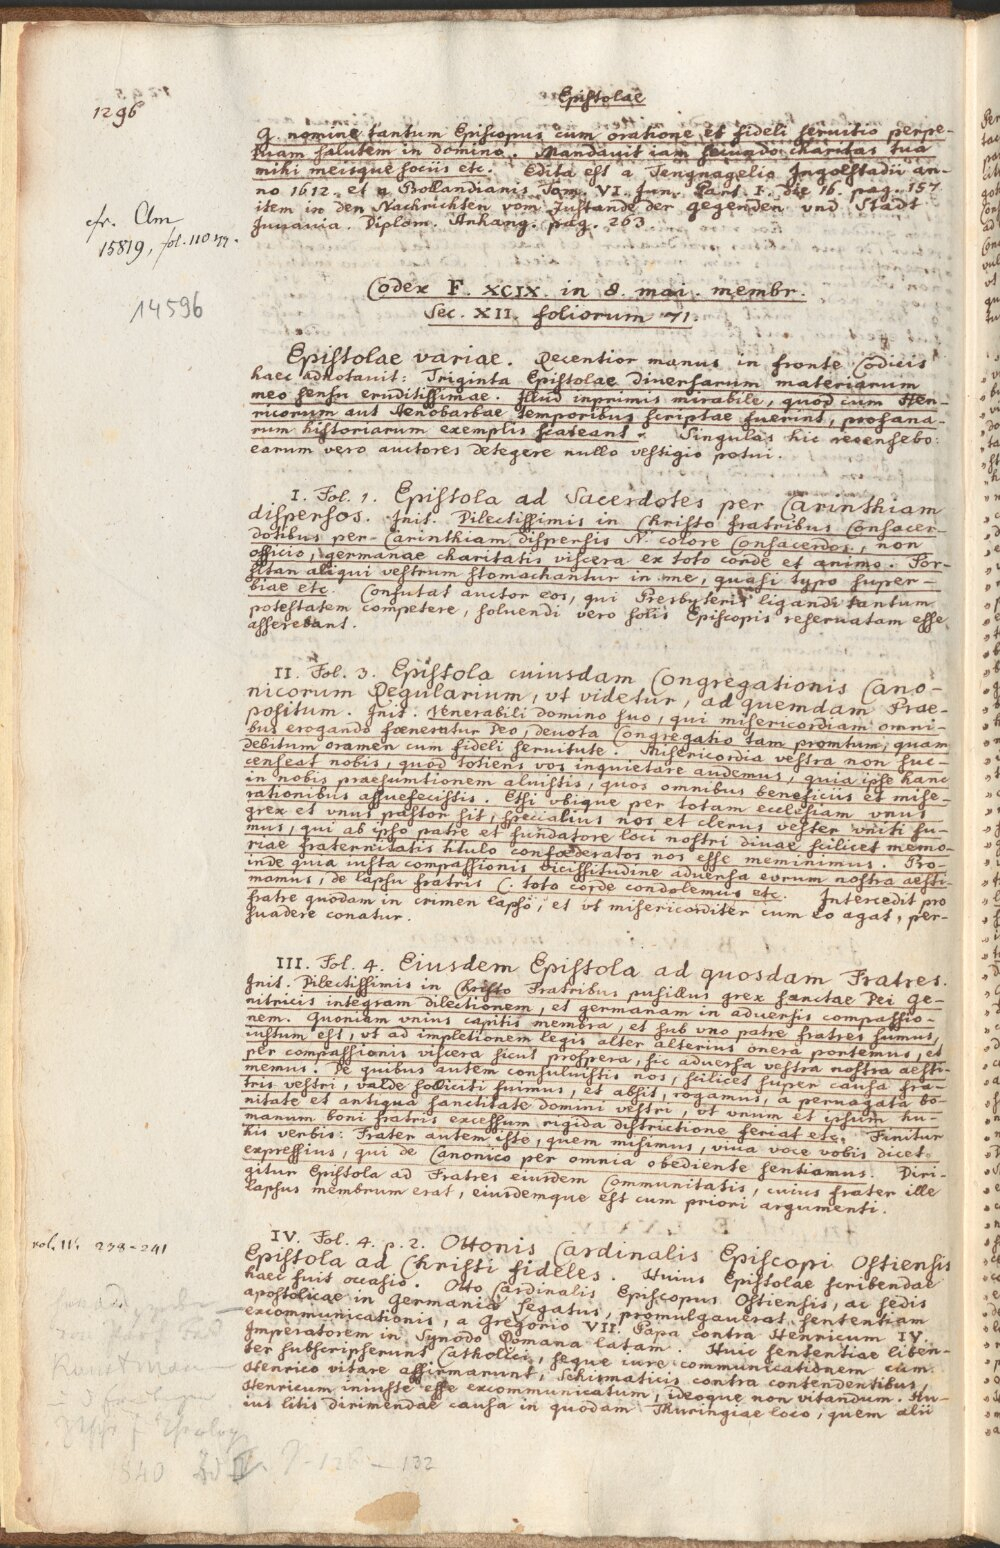 Epistolae
1296
G. nomine tantum Episcopus cum oratione et fideli seruitio perpe-
tuam salutem in domino. Mandauit iam secundo charitas tua
mihi meisque sociis etc. Edita est a Tengnagelio Ingolstadii an-
no 1612. et a Bollandianis Tom. VI. Jun. Part. I. die 16. pag. 157
item in den Nachrichten vom Zustande der Gegenden vnd Stadt
Juuauia. Diplom. Anhang. pag. 263.
cfr. Clm
15819, fol. 110
Codex F. XCIX. in 8. mai. membr.
14596
Sec. XII. foliorum 71.
Epistolae variae. Recentior manus in fronte Codicis
haec adnotauit: Triginta Epistolae diuersarum materiarum
meo sensu eruditissimae. Illud inprimis mirabile, quod cum Hen-
ricorum aut Aenobarbae temporibus scriptae fuerint, prophana-
rum historiarum exemplis scateant. Singulas hic recensebo:
earum vero auctores detegere nullo vestigio potui.
I. Fol. 1. Epistola ad Sacerdotes per Carinthiam
dispersos. Init. Dilectissimis in Christo fratribus Consacer-
dotibus per Carinthiam dispersis N. colore Consacerdos, non
officio, germanae charitatis viscera ex toto corde et animo. For-
sitan aliqui vestrum stomachantur in me, quasi typo super-
biae etc. Confutat auctor eos, qui Presbyteris ligandi tantum
potestatem competere, soluendi vero solis Episcopis reseruatam esse
asserebant.
II. Fol. 3. Epistola cuiusdam Congregationis Cano-
nicorum Regularium, vt videtur, ad quemdam Prae-
positum. Init. Venerabili domino suo, qui misericordiam omni-
bus erogando foeneratur Deo, deuota Congregatio tam promtum, quam
debitum oramen cum fideli seruitute. Misericordia vestra non suc-
censeat nobis, quod totiens vos inquietare audemus, quia ipse hanc
in nobis praesumtionem aluistis, quos omnibus beneficiis et mise-
rationibus assuefecistis. Etsi vbique per totam ecclesiam vnus
grex et vnus pastor sit, specialius nos et clerus vester vniti su-
mus, qui ab ipso patre et fundatore loci nostri diuae scilicet memo-
riae fraternitatis titulo confoederatos nos esse meminimus. Pro-
inde quia iusta compassionis vicissitudine aduersa eorum nostra aesti-
mamus, de lapsu fratris C. toto corde condolemus etc. Intercedit pro
fratre quodam in crimen lapso, et vt misericorditer cum eo agat, per-
suadere conatur.
III. Fol. 4. Eiusdem Epistola ad quosdam Fratres.
Init. Dilectissimis in Christo Fratribus pusillus grex sanctae Dei ge-
nitricis integram dilectionem, et germanam in aduersis compassio-
nem. Quoniam vnius capitis membra, et sub vno patre fratres sumus,
iustum est, vt ad impletionem legis alter alterius onera portemus, et
per compassionis viscera sicut prospera, sic aduersa vestra nostra aesti-
memus. De quibus autem consuluistis nos, scilicet super causa fra-
tris vestri, valde solliciti fuimus, et absit, rogamus, a peruagata bo-
nitate et antiqua sanctitate domini vestri, vt vnum et ipsum hu-
manum boni fratris excessum rigida districtione feriat etc. Finitur
his verbis: Frater autem iste, quem misimus, viua voce vobis dicet
expressius, qui de Canonico per omnia obediente sentiamus. Diri-
gitur Epistola ad Fratres eiusdem Communitatis, cuius frater ille
lapsus membrum erat, eiusdemque est cum priori argumenti.
vol. IV. 238-241
IV. Fol. 4. p. 2. Ottonis Cardinalis Episcopi Ostiensis
Epistola ad Christi fideles. Huius Epistolae scribendae
haec fuit occasio. Otto Cardinalis Episcopus Ostiensis, ac sedis
apostolicae in Germania Legatus, promulgauerat sententiam
excommunicationis, a Gregorio VII. Papa contra Henricum IV.
Imperatorem in Synodo Romana latam. Huic sententiae liben-
ter subscripserunt Catholici, seque iure communicationem cum
Henrico vitare affirmarunt, Schismaticis contra contendentibus,
Henricum iniuste esse excommunicatum, ideoque non vitandum. Hu-
ius litis dirimendae causa in quodam Thuringiae loco, quem alii
Ztschr f Theolog
1840 Bd 126 - 132